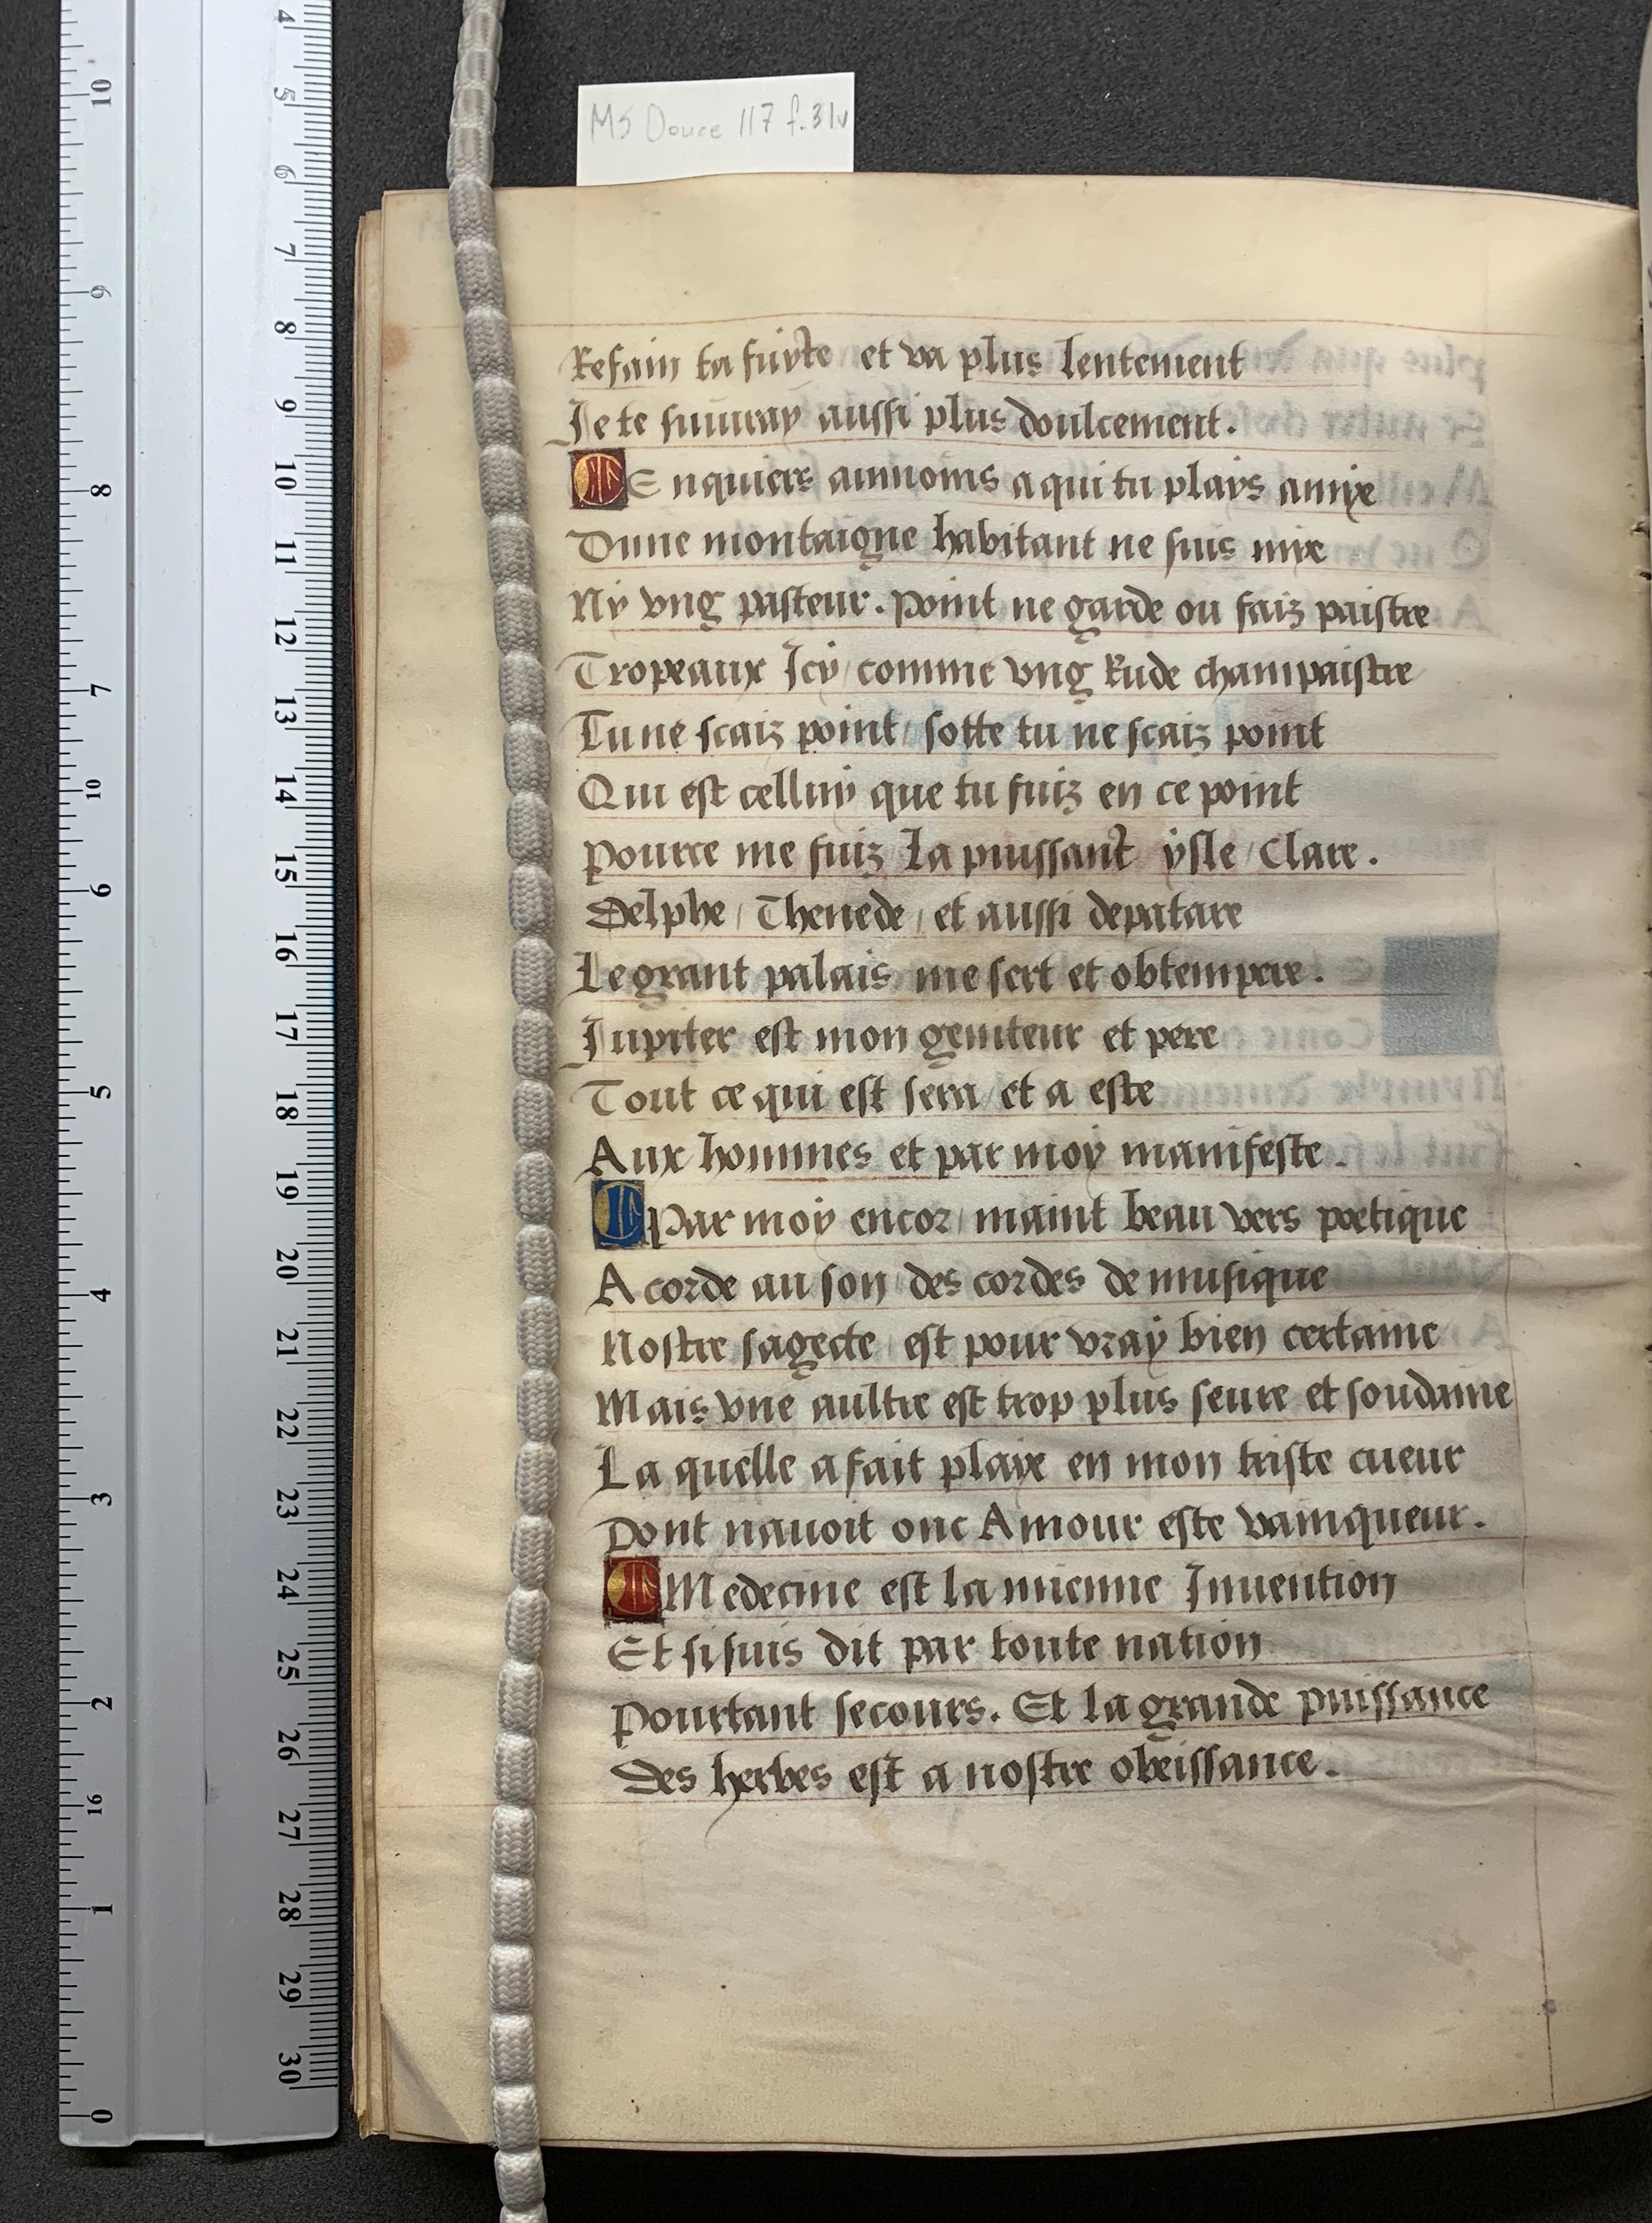 MS Douce 117 f.31v
Refain ta fuyte et va plus lentement
Je te suiuray aussi plus doulcement.
Enquiers aumoins a qui tu plays amye
Dune montaigne habitant ne suis mye
Ny vng pasteur. point ne garde ou faiz paistre
Tropeaux Jcy / comme vng Rude champaistre
Tu ne scaiz point / sotte tu ne scaiz point
Qui est celluy que tu fuiz en ce point
pource me fuiz La puissant ysle / Clare.
Delphe / Thenede / et aussi depatare
Le grant palais me sert et obtempere.
Jupiter est mon geniteur et pere
Tout ce qui est sera / et a este
Aux hommes et par moy manifeste.
Par moy encor / maint beau vers poetique
Acorde au son / des cordes de musique
Nostre sagecte / est pour vray bien certaine
Mais vne aultre est trop plus seure et soudaine
La quelle a fait playe en mon triste cueur
Dont nauoit onc Amour este vainqueur.
Medecine est la mienne Jnuention
Et si suis dit par toute nation
Pourtant secours. Et la grande puissance
Des herbes est a nostre obeissance.